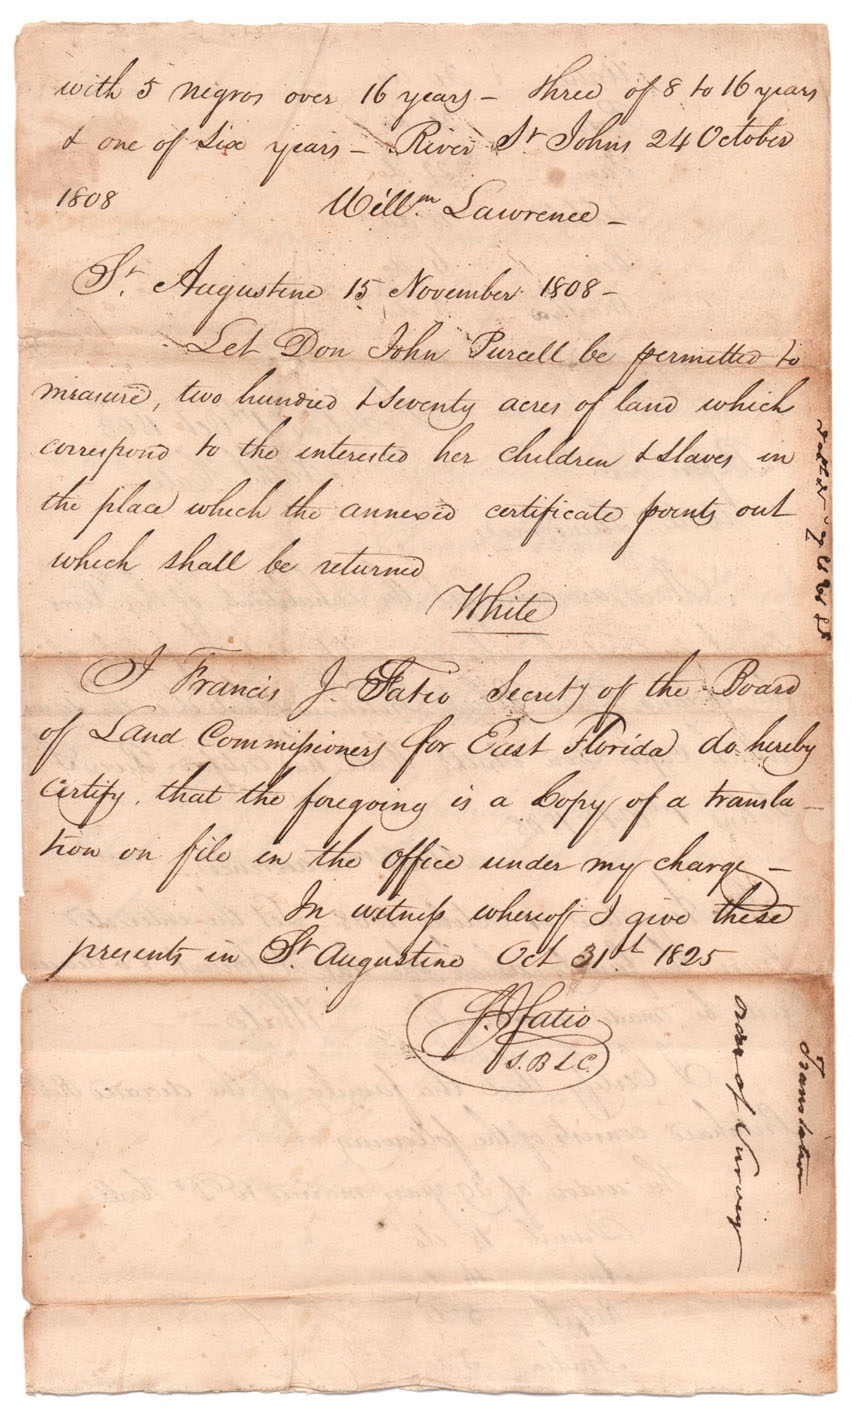 with 5 negros over 16 years — three of 8 to 16 years
& one of six years — River St Johns 24 October
1808 Willm Lawrence —
St. Augustine 15 November 1808 —
Let Don John Purcell be permitted to
measure, two hundred & seventy acres of land which
correspond to the interested her children & slaves in
the place which the annexed certificate points out
which shall be returned
White
I Francis J. Fatio Secrety of the Board
of Land Commissioners for East Florida do hereby
certify, that the foregoing is a Copy of a transla-
tion on file in the office under my charge —
In witness whereof I give these
presents in St Augustine Oct 31st 1825
F. J. Fatio
S. B. L. C.
Translation
order of Survey